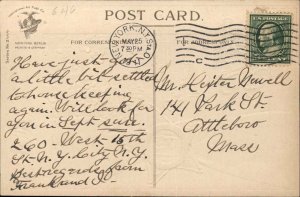 POST CARD.
FOR CORRESPONDENCE
NEW YORK, N.Y. STA. O
MAY 25
7 30 PM
C
Have just got
a little bit settled
to housekeeping
again. Will look for
you in Sept sure.
260 - West 15th
St. N.Y. City N.Y.
Best regards from
Frank and
Mr. Newell
141 Park St.
Attleboro
Mass